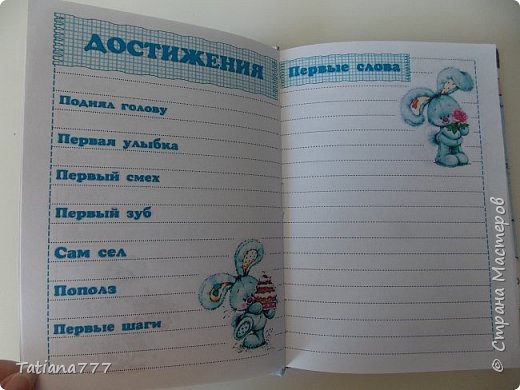 ДОСТИЖЕНИЯ
Поднял голову
Первая улыбка
Первый смех
Первый зуб
Сам сел
Пополз
Первые шаги
Первые слова
Tatiana777
© Страна Мастеров